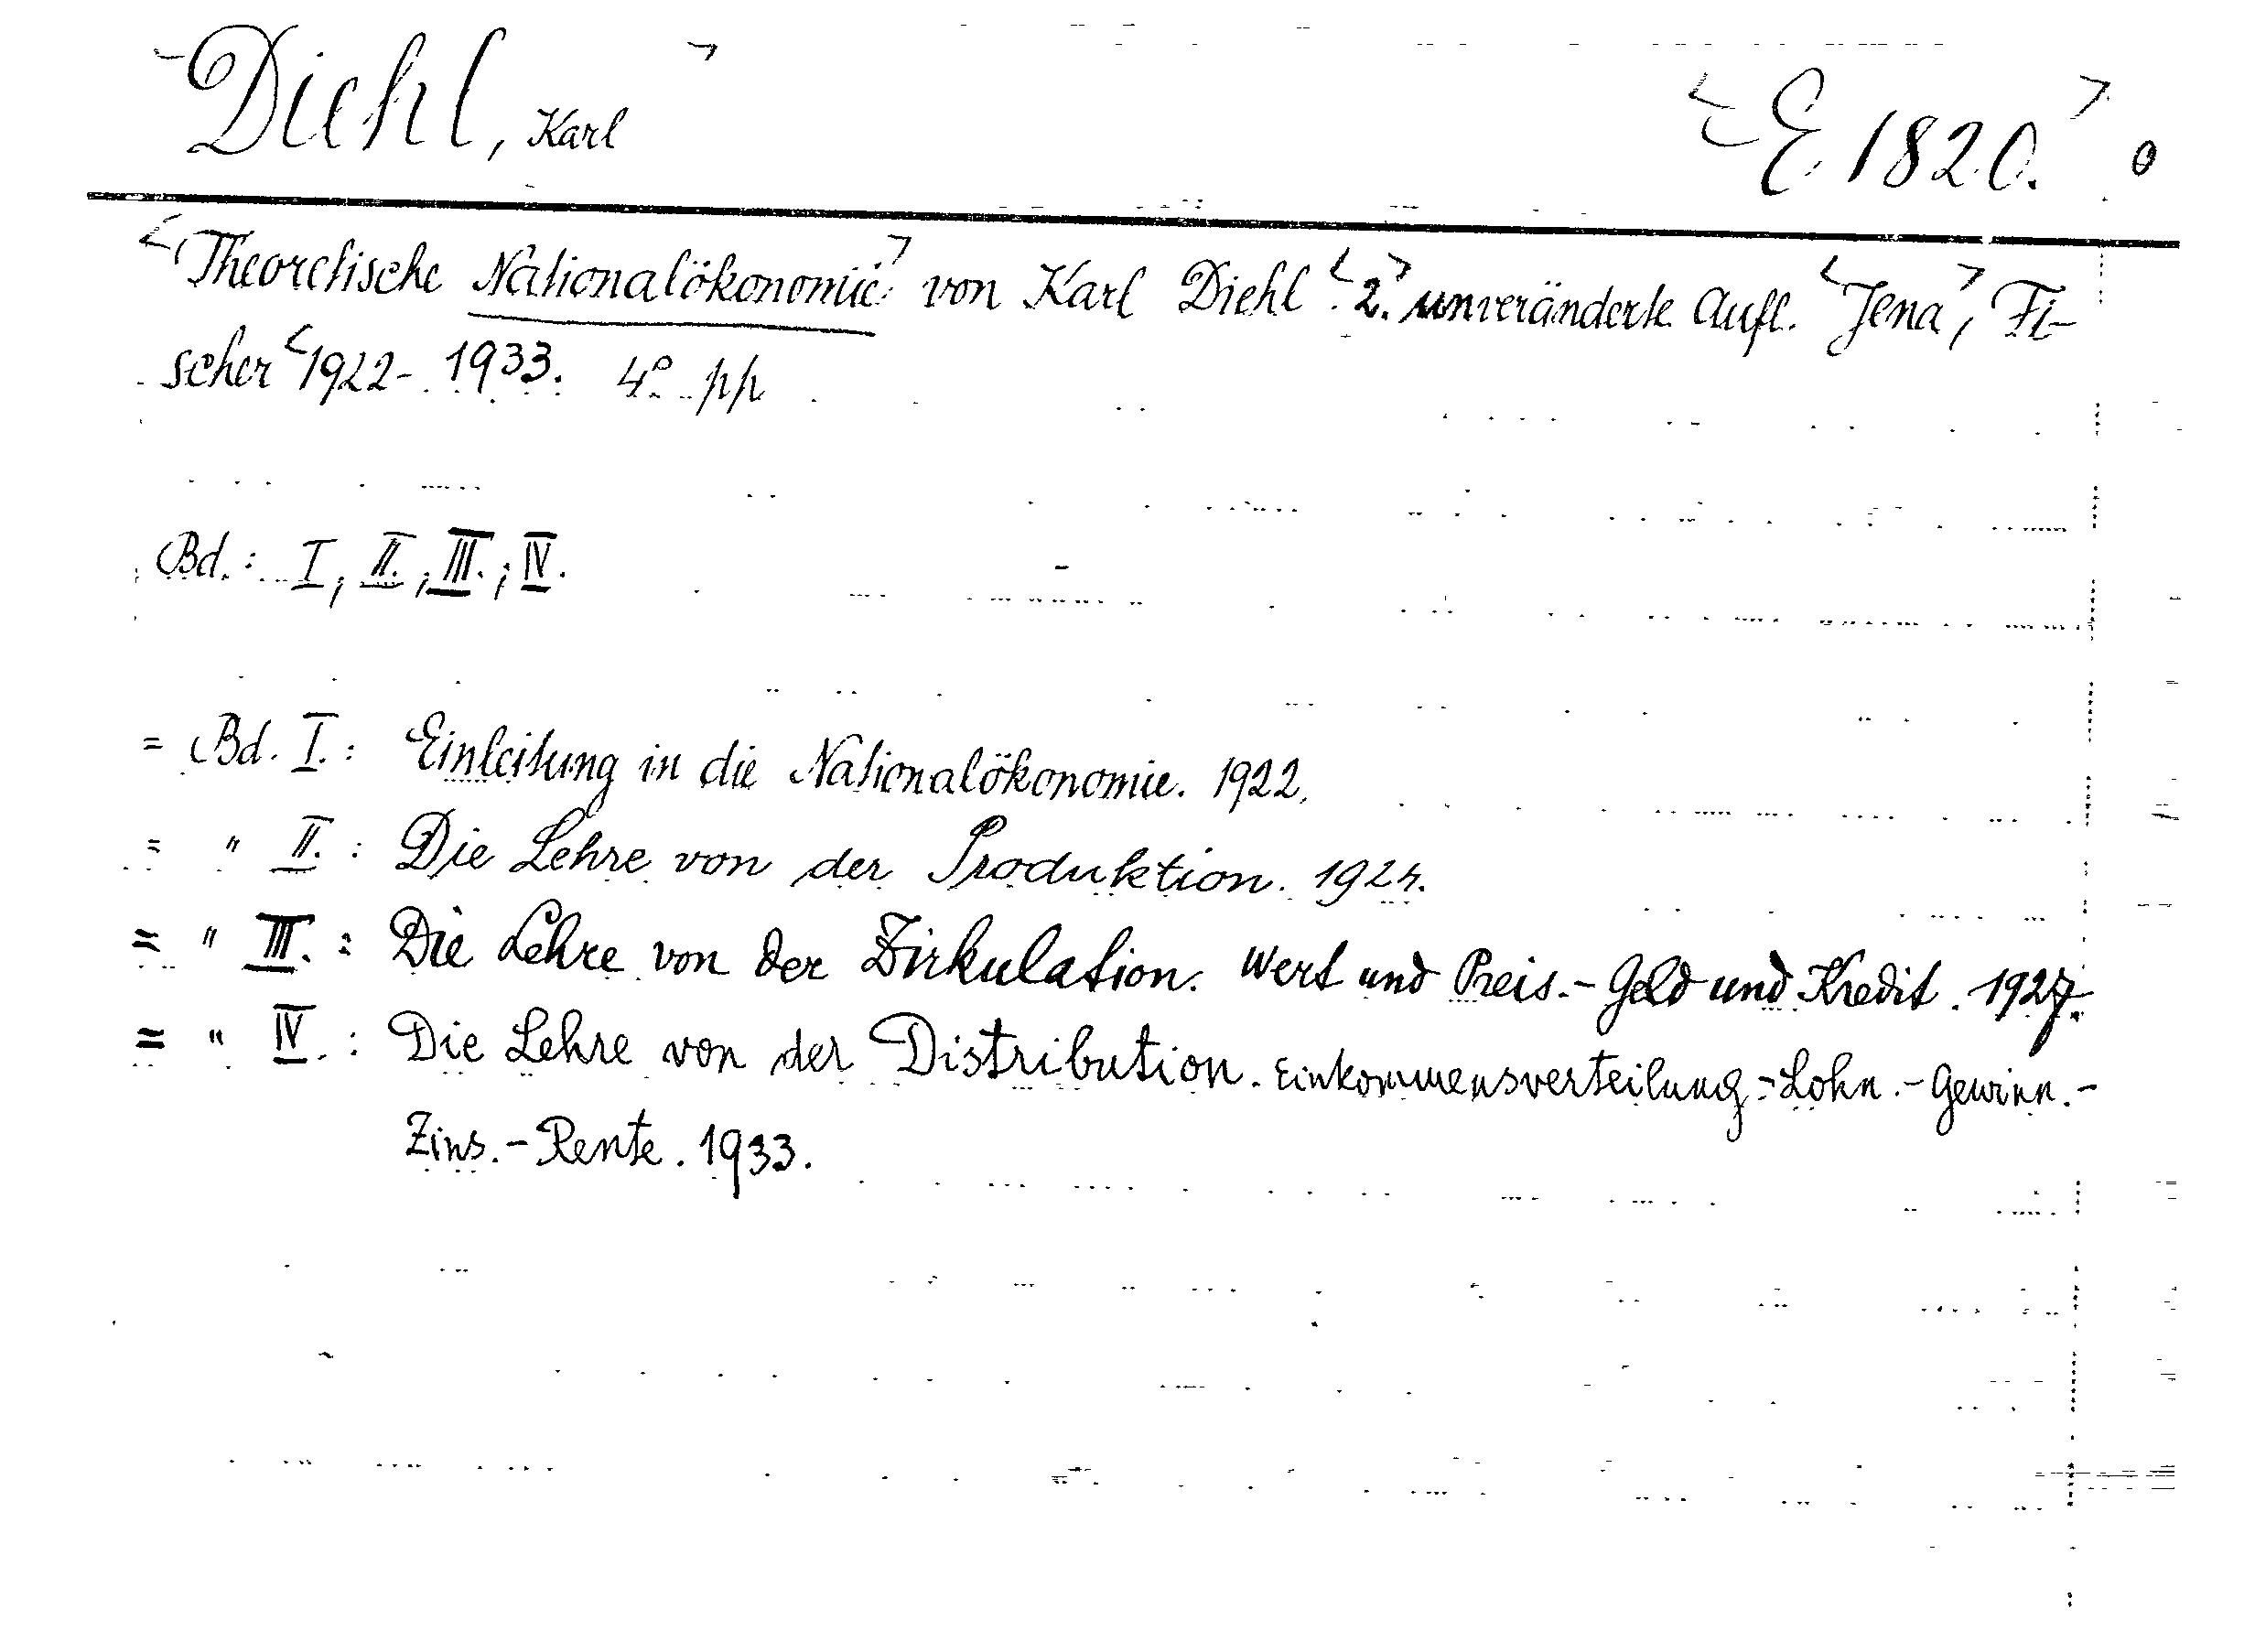 <Diehl, Karl>
<E 1820.>
<Theoretische Nationalökonomie> von Karl Diehl <2.> unveränderte Aufl. <Jena>, Fi-
scher <1922-1933. 4° pp
Bd.: I, II.; III.; IV.
= Bd. I.: Einleitung in die Nationalökonomie. 1922.
= " II.: Die Lehre von der Produktion. 1924.
= " III.: Die Lehre von der Zirkulation. Wert und Preis.- Geld und Kredit. 1927.
= " IV.: Die Lehre von der Distribution. Einkommensverteilung.- Lohn.- Gewinn.-
Zins.- Rente. 1933.